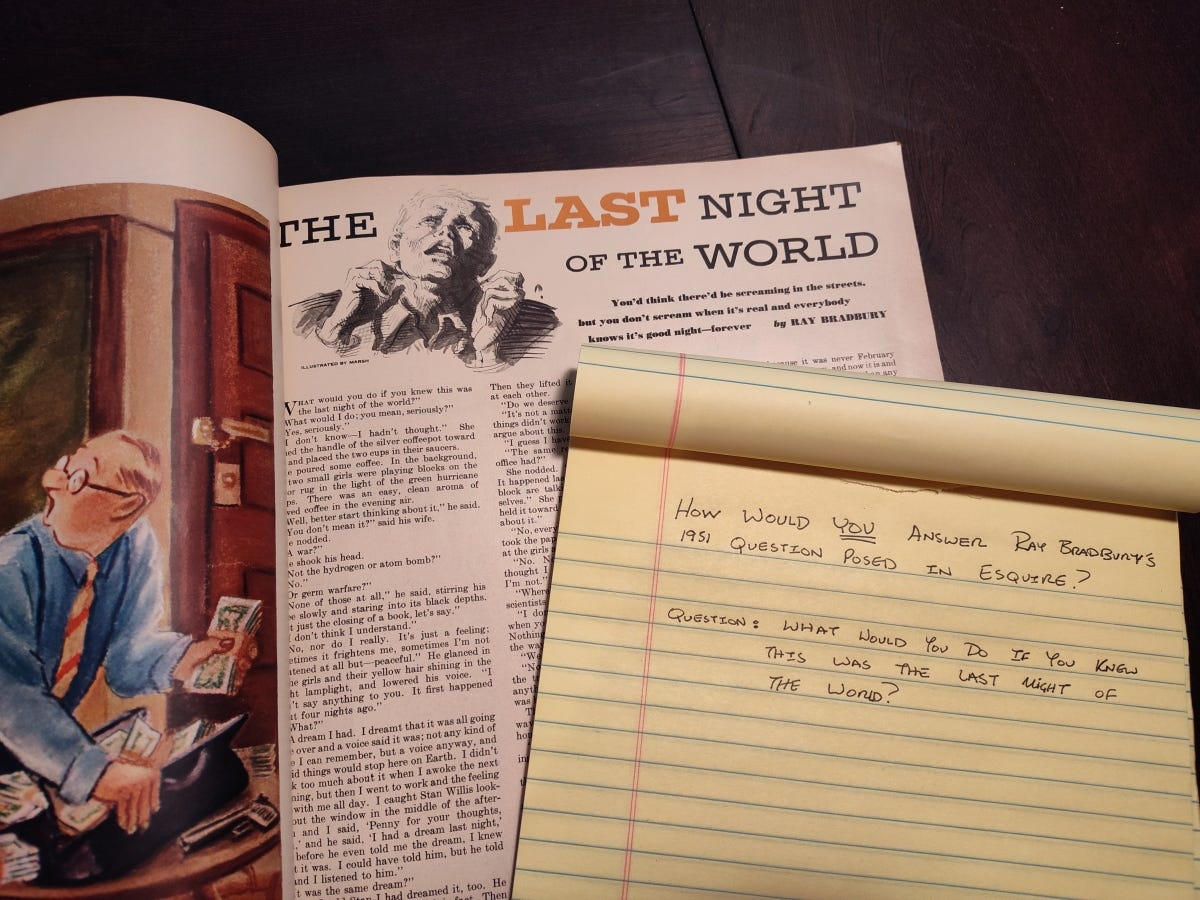 THE LAST NIGHT
OF THE WORLD
You'd think there'd be screaming in the streets,
but you don't scream when it's real and everybody
knows it's good night—forever by RAY BRADBURY
ILLUSTRATED BY MARSH
WHAT would you do if you knew this was
the last night of the world?"
What would I do; you mean, seriously?"
Yes, seriously."
I don't know—I hadn't thought." She
the handle of the silver coffeepot toward
and placed the two cups in their saucers.
poured some coffee. In the background,
two small girls were playing blocks on the
rug in the light of the green hurricane
There was an easy, clean aroma of
coffee in the evening air.
Well, better start thinking about it," he said.
You don't mean it?" said his wife.
nodded.
A war?"
shook his head.
Not the hydrogen or atom bomb?"
No."
Or germ warfare?"
None of those at all," he said, stirring his
slowly and staring into its black depths.
just the closing of a book, let's say."
don't think I understand."
No, nor do I really. It's just a feeling;
it frightens me, sometimes I'm not
at all but—peaceful." He glanced in
girls and their yellow hair shining in the
lamplight, and lowered his voice. "I
say anything to you. It first happened
four nights ago."
What?"
A dream I had. I dreamt that it was all going
over and a voice said it was; not any kind of
I can remember, but a voice anyway, and
things would stop here on Earth. I didn't
too much about it when I awoke the next
but then I went to work and the feeling
with me all day. I caught Stan Willis look-
out the window in the middle of the after-
and I said, 'Penny for your thoughts,
and he said, 'I had a dream last night,'
before he even told me the dream, I knew
it was. I could have told him, but he told
and I listened to him."
t was the same dream?"
Stan I had dreamed it, too. He
Then
Then they lifted
at each other.
"Do we deserve
"It's not a
things didn't work
argue about this.
"I guess I
"The same
office had?"
She nodded.
It happened
block are
selves." She
held it toward
about it."
"No,
took the
at the girls
"No.
thought I
I'm not."
"Where
scientists
"I
when you
Nothing
the
it was never February
and now it is and
any
HOW WOULD YOU ANSWER RAY BRADBURY'S
1951 QUESTION POSED IN ESQUIRE?
QUESTION: WHAT WOULD YOU DO IF YOU KNEW
THIS WAS THE LAST NIGHT OF
THE WORLD?